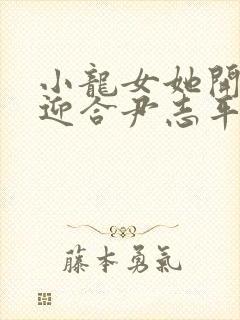 小龍女她開
迎合尹志平
藤本勇氣